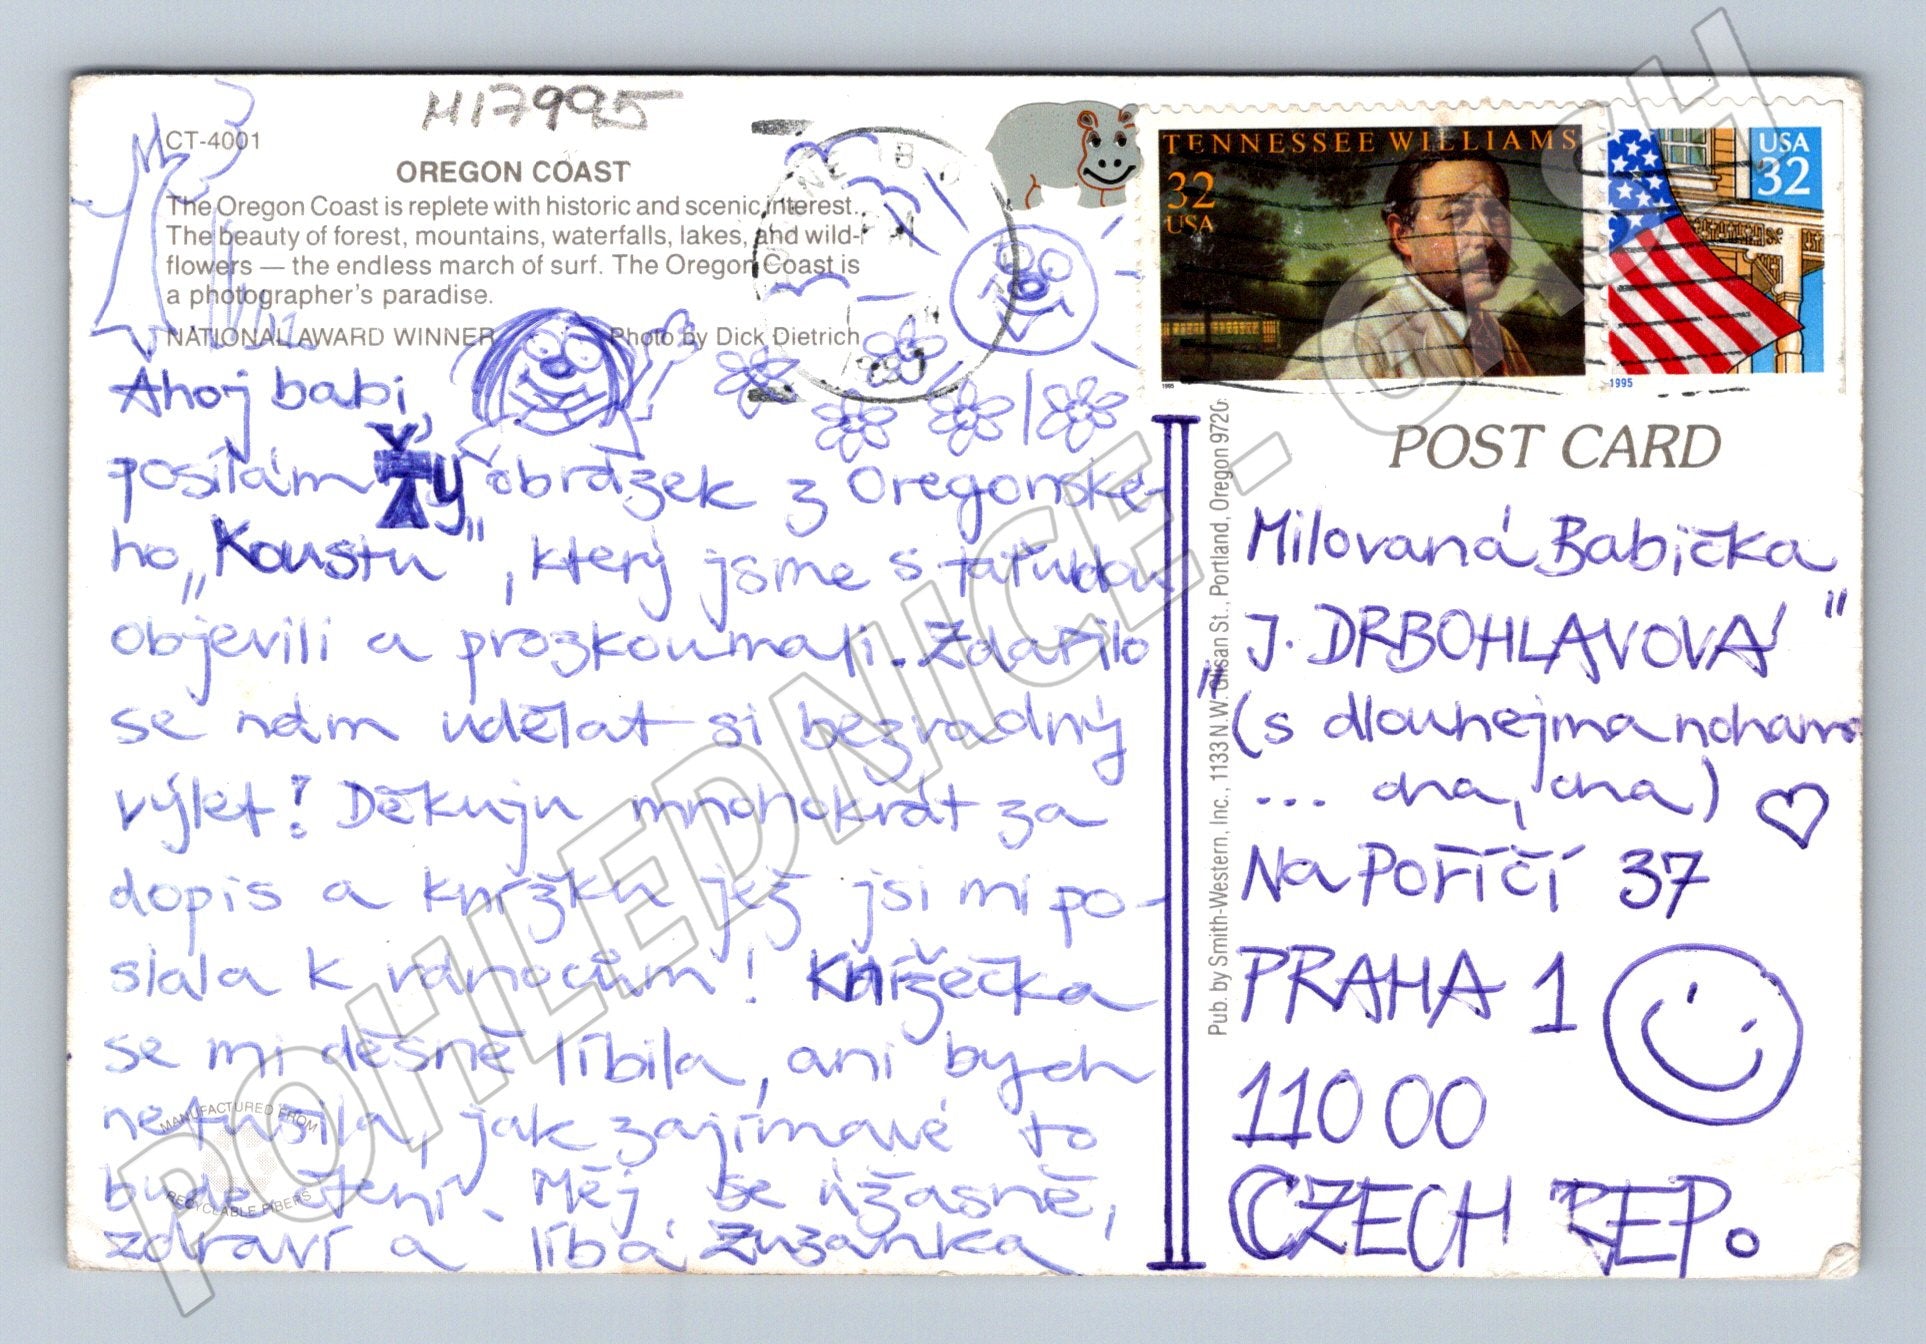 H17995
CT-4001
OREGON COAST
The Oregon Coast is replete with historic and scenic interest.
The beauty of forest, mountains, waterfalls, lakes, and wild-
flowers — the endless march of surf. The Oregon Coast is
a photographer's paradise.
NATIONAL AWARD WINNER Photo by Dick Dietrich
PM
TENNESSEE WILLIAMS
32
USA
1995
USA
32
1995
POST CARD
Ahoj babi,
posílám Ty obrázek z Oregonské-
ho „Koustu", který jsme s taťuldou
objevili a prozkoumali. Zdařilo
se nám udělat si bezvadný
výlet! Děkuju mnohokrát za
dopis a knížku jež jsi mi po-
slala k vánocům! Knížečka
se mi děsně líbila, ani bych
netušila, jak zajímavé to
bude čtení. Měj se úžasně,
zdraví a líbá Zuzanka
Pub. by Smith-Western, Inc., 1133 N.W. Glisan St., Portland, Oregon 9720
Milovaná Babička
„J. DRBOHLAVOVÁ"
(s dlouhejma nohama
... cha, cha)
Na Poříčí 37
PRAHA 1
110 00
CZECH REP.
MANUFACTURED FROM
RECYCLABLE FIBERS
POHLEDNICE - CASH